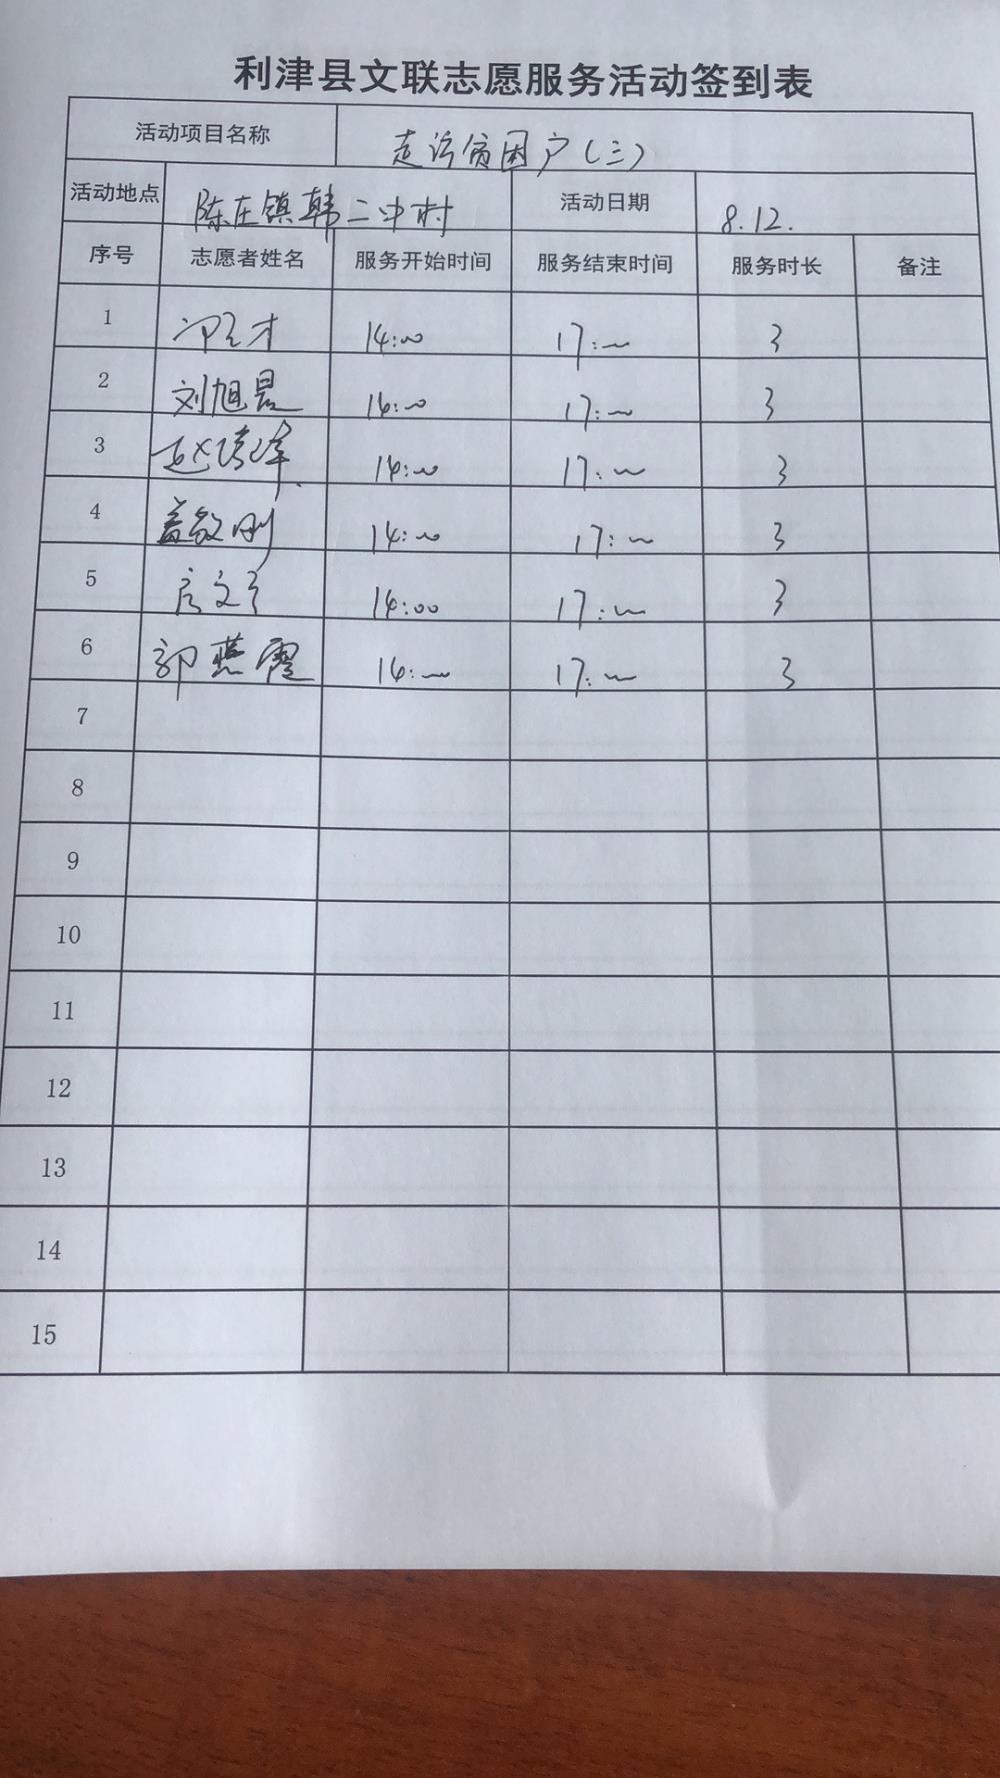 利津县文联志愿服务活动签到表
活动项目名称 走访贫困户(三)
活动地点 陈庄镇韩二中村 活动日期 8.12.
序号 志愿者姓名 服务开始时间 服务结束时间 服务时长 备注
1 14:00 17:00 3
2 刘旭昌 14:00 17:00 3
3 14:00 17:00 3
4 盖敏刚 14:00 17:00 3
5 14:00 17:00 3
6 郭燕霞 14:00 17:00 3
7
8
9
10
11
12
13
14
15